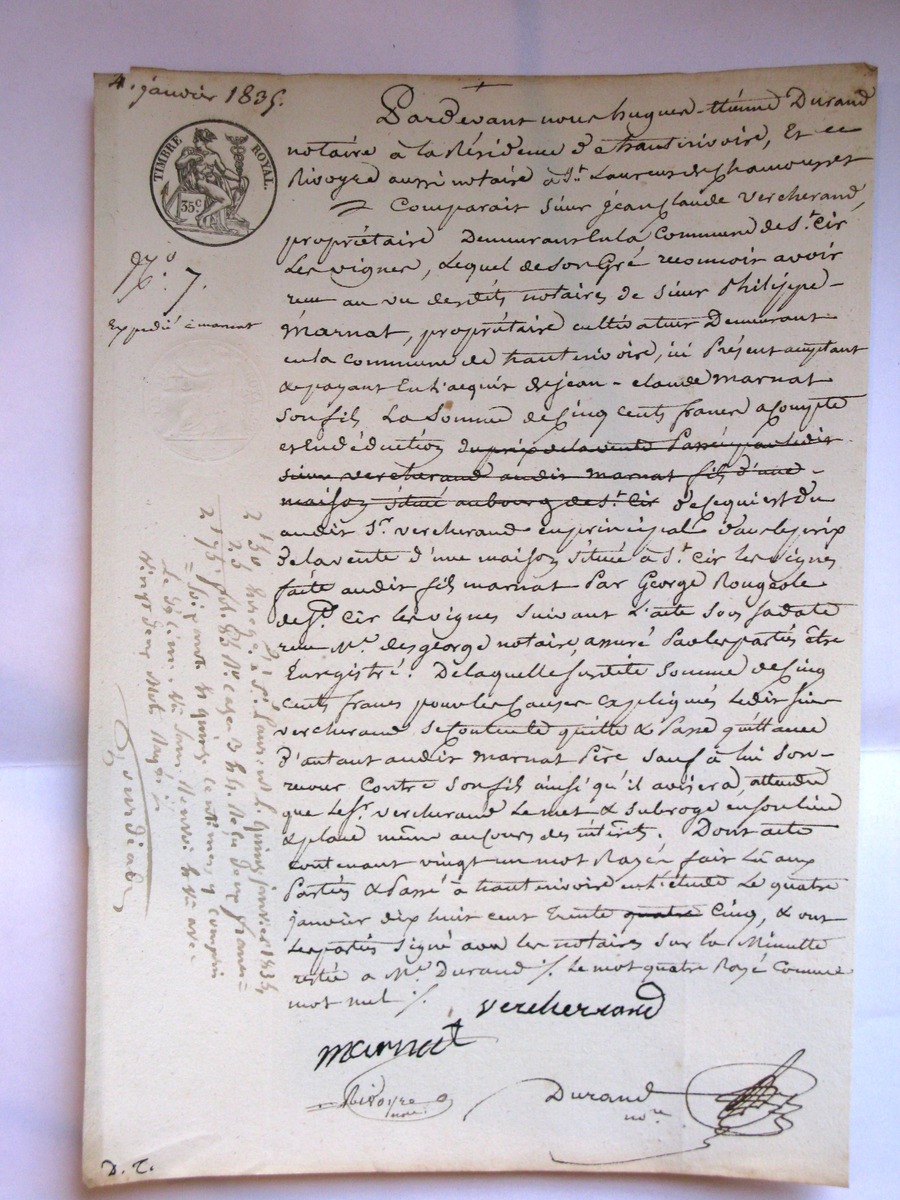 4. janvier 1835.
TIMBRE ROYAL.
35c
N.o 7.
Expédié à marnat
Pardevant nous hugues-Etienne Durand
notaire à la Résidence de hauterivoire, Et
Rivoyre aussi notaire à St. Laurent de Chamousset
Comparait Sieur jean Claude Vercherand,
propriétaire Demeurant En la Commune de St. Cir
Les vignes, Lequel de son Gré reconnoit avoir
reçu au vu desdits notaires de Sieur Philippe
marnat, propriétaire cultivateur Demeurant
en la Commune de hauterivoire, ici Présent acceptant
& payant En L'acquit de jean-claude marnat
son fils La Somme de Cinq cents francs acompte
et En déduction du prix de la vente Passée par ledit
sieur vercherand audit marnat fils d'une
maison située au bourg de St. Cir de ce qui est Du
audit Sr. vercherand en principal dans le prix
De la vente d'une maison située à St. Cir les vignes
faite audit fils marnat Par George Rougeole
de St. Cir les vignes suivant L'acte Sous sa date
reçu Me. desgeorge notaire, assuré Par les partiés être
Enregistré. De laquelle susdite Somme de Cinq
cents francs pour les causes Expliquées Ledit sieur
vercherand se Contente quitte & Passe quittance
D'autant audit marnat Père sauf à lui son
recour Contre son fils ainsi qu'il avisera, attendu
que le Sr. vercherand Le met & subroge en son lieu
& place même au cours des intérêts. Dont acte
contenant vingt un mot Rayés fait Lu aux
Partiés & Passé à hauterivoire en L'étude Le quatre
janvier dix huit cent trente quatre Cinq, & ont
Les partiés Signé avec les notaires sur la Minutte
restée a Me. Durand ./. Le mot quatre Rayé Comme
mot nul ./.
vercherand
marnat
Rivoyre
nore
Durand
nore
D. T.